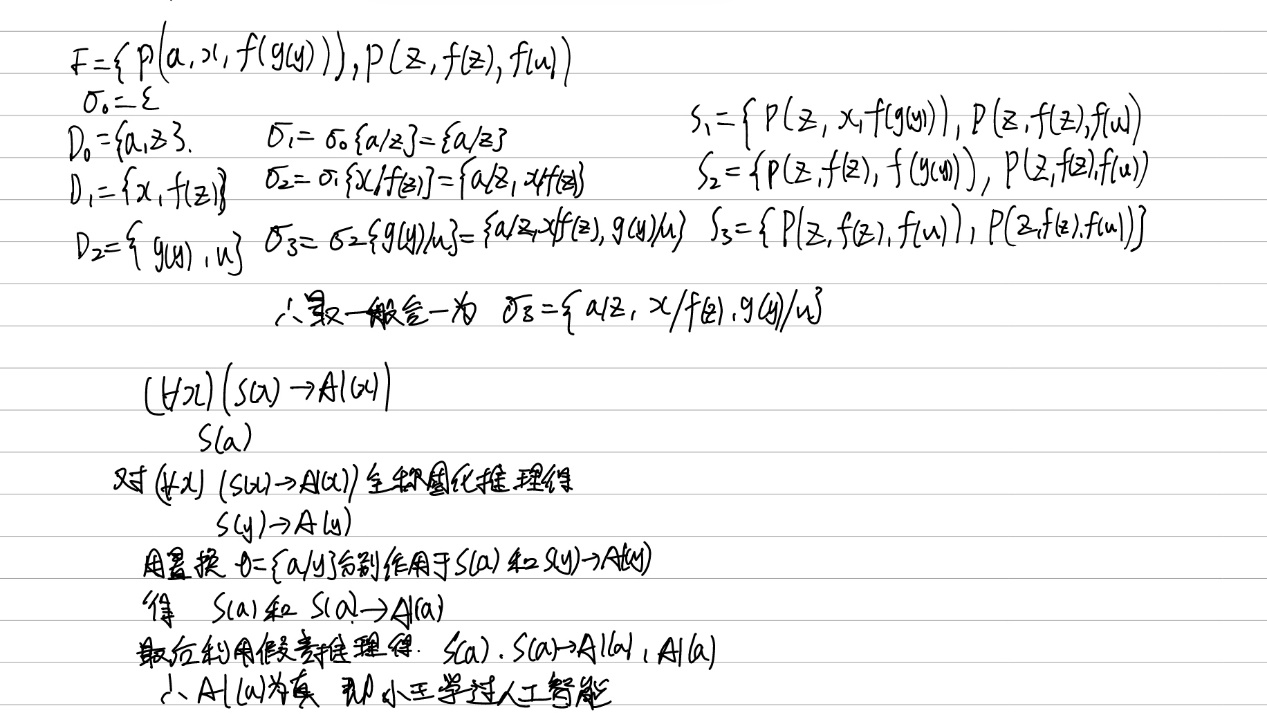 F={P(a,x,f(g(y))),P(z,f(z),f(u))
σ₀=ε
D₀={a,z}. σ₁=σ₀{a/z}={a/z} S₁={P(z,x,f(g(y)),P(z,f(z),f(u))
D₁={x,f(z)} σ₂=σ₁{x/f(z)}={a/z,x/f(z)} S₂={P(z,f(z),f(g(y)),P(z,f(z),f(u))
D₂={g(y),u} σ₃=σ₂{g(y)/u}={a/z,x/f(z),g(y)/u} S₃={P(z,f(z),f(u)),P(z,f(z),f(u))}
∴最一般合一为 σ₃={a/z,x/f(z),g(y)/u}
(∀x)(S(x)→AI(x))
S(a)
对(∀x)(S(x)→A(x))全称固化推理得
S(y)→A(y)
用置换θ={a/y}分别作用于S(a)和S(y)→A(y)
得 S(a)和S(a)→A(a)
最后利用假言推理得. S(a),S(a)→AI(a),AI(a)
∴AI(a)为真 即小王学过人工智能